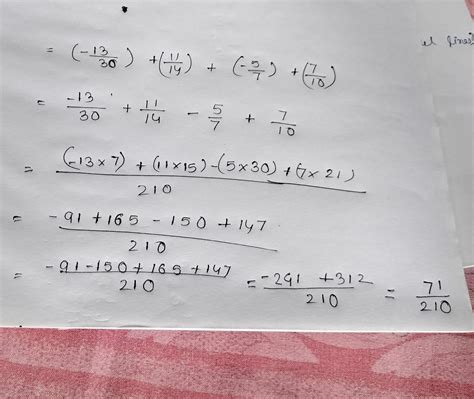 ul fines
= (-13/30) + (11/14) + (-5/7) + (7/10)
= -13/30 + 11/14 - 5/7 + 7/10
= (-13×7) + (11×15) - (5×30) + (7×21) / 210
= -91 + 165 - 150 + 147 / 210
= -91 - 150 + 165 + 147 / 210 = -241 + 312 / 210 = 71/210